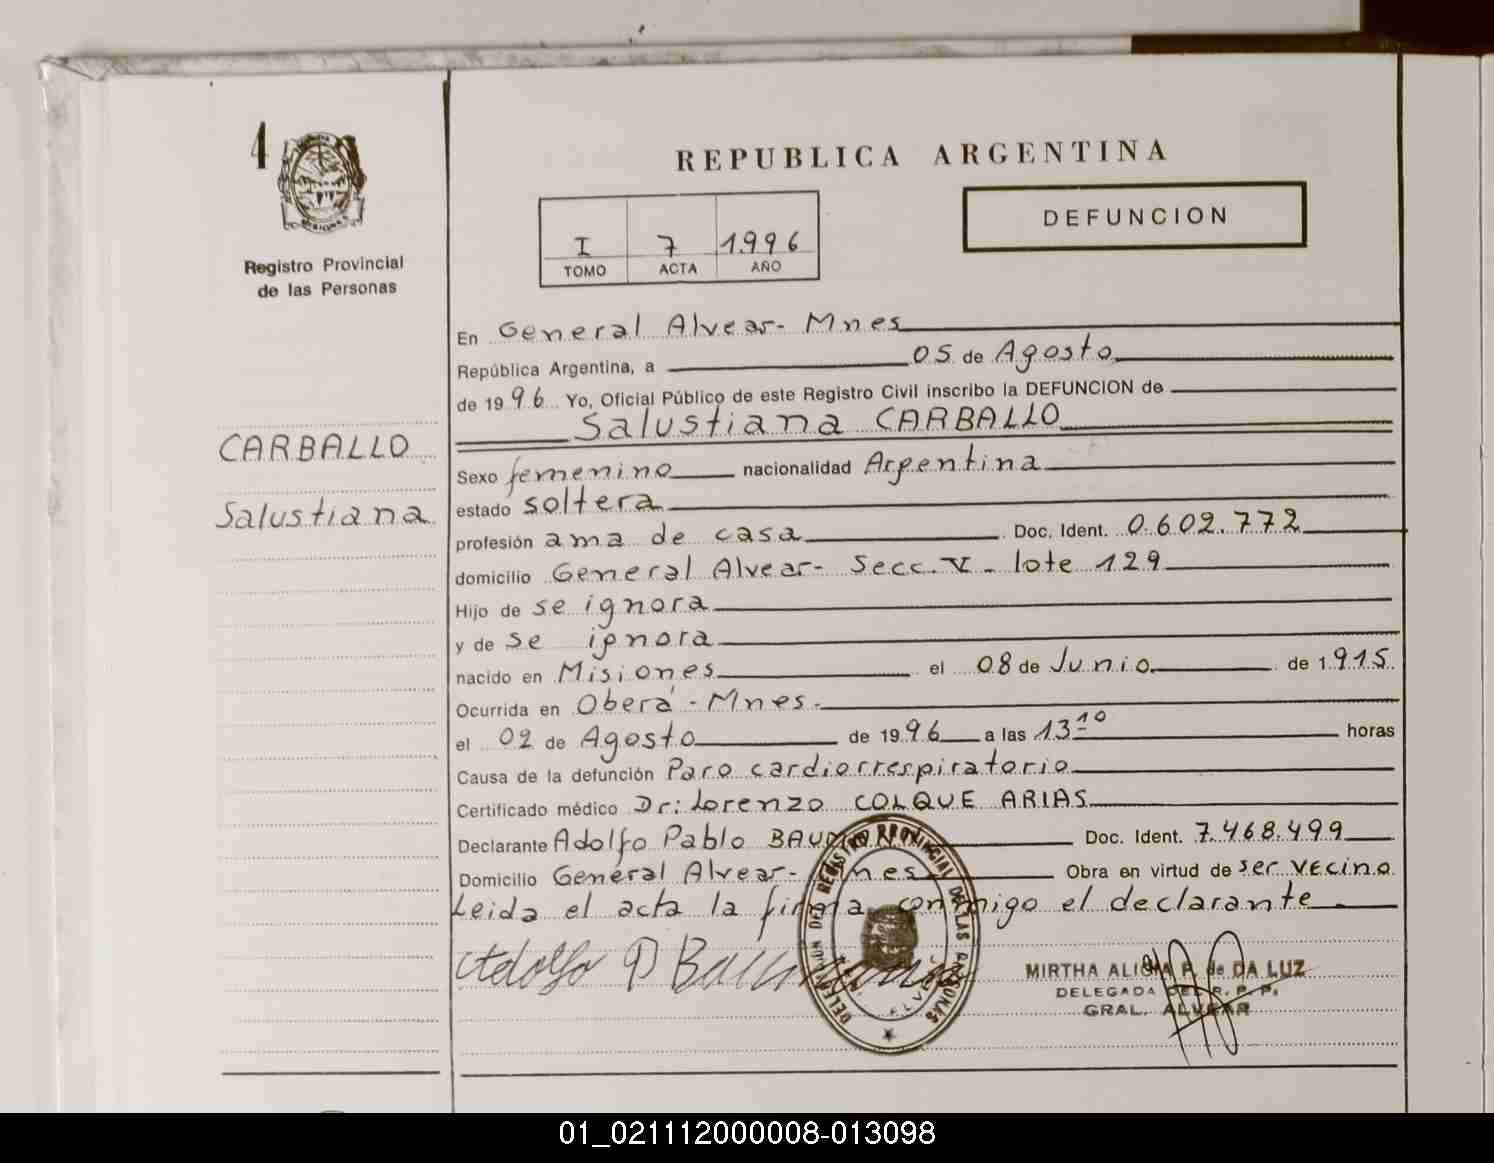 4
Registro Provincial
de las Personas
CARBALLO
Salustiana
REPUBLICA ARGENTINA
I 7 1996
TOMO ACTA AÑO
DEFUNCION
En General Alvear- Mnes
República Argentina, a 05 de Agosto
de 1996 Yo, Oficial Público de este Registro Civil inscribo la DEFUNCION de
Salustiana CARBALLO
Sexo femenino nacionalidad Argentina
estado soltera
profesión ama de casa Doc. Ident. 0.602.772
domicilio General Alvear- Secc. V - lote 129
Hijo de se ignora
y de se ignora
nacido en Misiones el 08 de Junio de 1.915.
Ocurrida en Oberá - Mnes.
el 02 de Agosto de 1996 a las 13 10 horas
Causa de la defunción Paro cardiorrespiratorio
Certificado médico Dr: Lorenzo COLQUE ARIAS
Declarante Adolfo Pablo Doc. Ident. 7.468.499
Domicilio General Alvear- Mnes Obra en virtud de ser vecino
Leida el acta la firma conmigo el declarante
Adolfo P
DEL REGISTRO PROVINCIAL DE LAS PERSONAS
MIRTHA ALICIA P. de DA LUZ
DELEGADA DEL R. P. P.
GRAL. ALVEAR
01_021112000008-013098